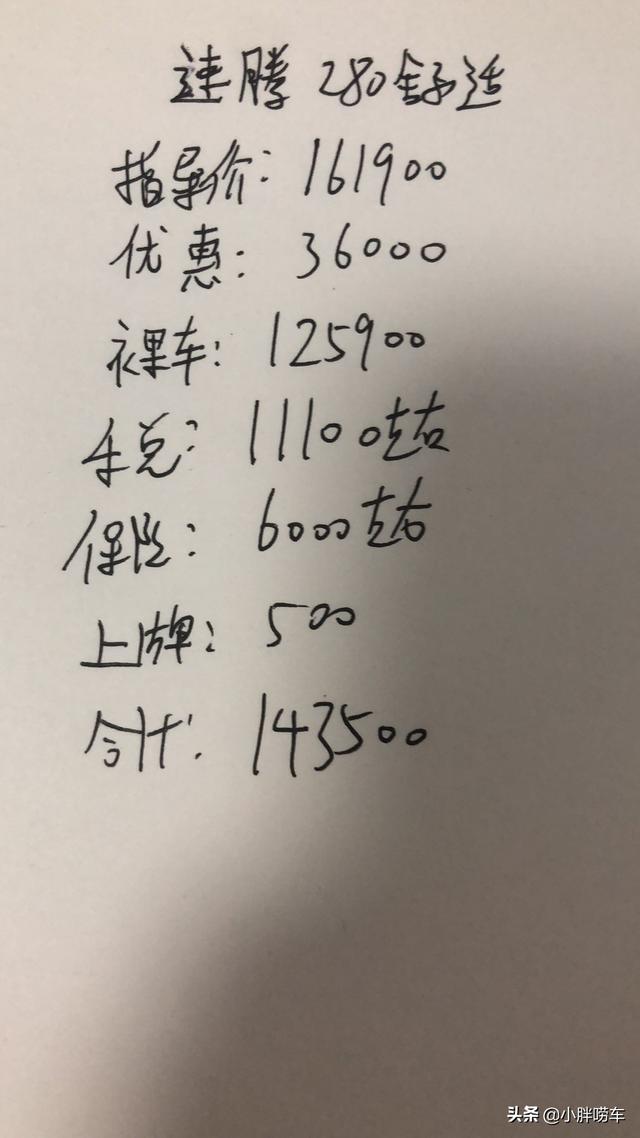 速腾 280舒适
指导价: 161900
优惠: 36000
裸车: 125900
车税: 11100左右
保险: 6000左右
上牌: 500
合计: 143500
头条 @小胖唠车